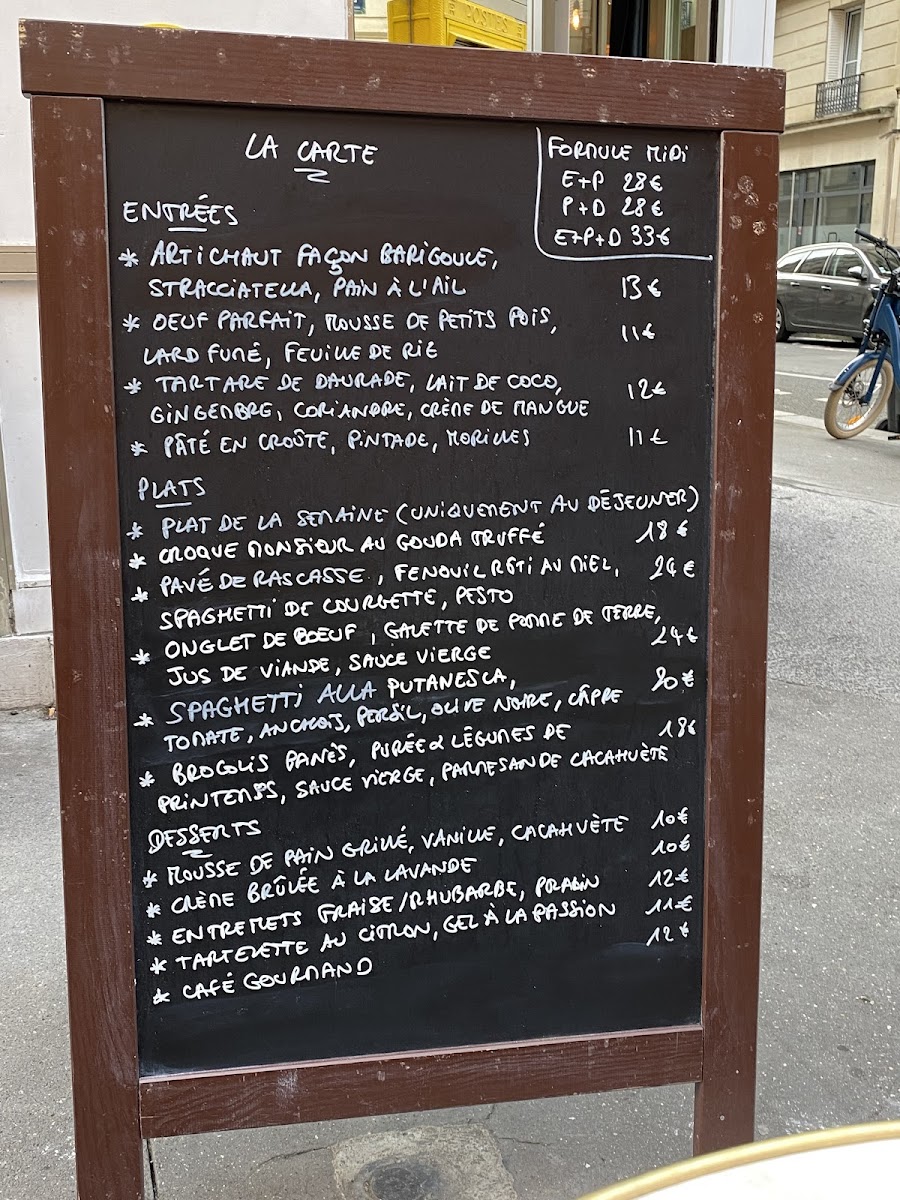 POSTES
LA CARTE
FORMULE MIDI
E+P 28€
P+D 28€
E+P+D 33€
ENTRÉES
* ARTICHAUT FAÇON BARIGOULE,
STRACCIATELLA, PAIN À L'AIL 13€
* OEUF PARFAIT, MOUSSE DE PETITS POIS, 11€
LARD FUMÉ, FEUILLE DE RIZ
* TARTARE DE DAURADE, LAIT DE COCO, 12€
GINGEMBRE, CORIANDRE, CRÈME DE MANGUE
* PÂTÉ EN CROÛTE, PINTADE, MORILLES 11€
PLATS
* PLAT DE LA SEMAINE (UNIQUEMENT AU DÉJEUNER)
* CROQUE MONSIEUR AU GOUDA TRUFFÉ 18€
* PAVÉ DE RASCASSE, FENOUIL RÔTI AU MIEL, 24€
SPAGHETTI DE COURGETTE, PESTO
* ONGLET DE BOEUF, GALETTE DE POMME DE TERRE, 24€
JUS DE VIANDE, SAUCE VIERGE
* SPAGHETTI ALLA PUTANESCA, 20€
TOMATE, ANCHOIS, PERSIL, OLIVE NOIRE, CÂPRE
* BROCOLIS PANÉS, PURÉE & LÉGUMES DE 18€
PRINTEMPS, SAUCE VIERGE, PARMESAN DE CACAHUÈTE
DESSERTS
* MOUSSE DE PAIN GRILLÉ, VANILLE, CACAHUÈTE 10€
* CRÈME BRÛLÉE À LA LAVANDE 10€
* ENTREMETS FRAISE/RHUBARBE, PRALIN 12€
* TARTELETTE AU CITRON, GEL À LA PASSION 11€
* CAFÉ GOURMAND 12€